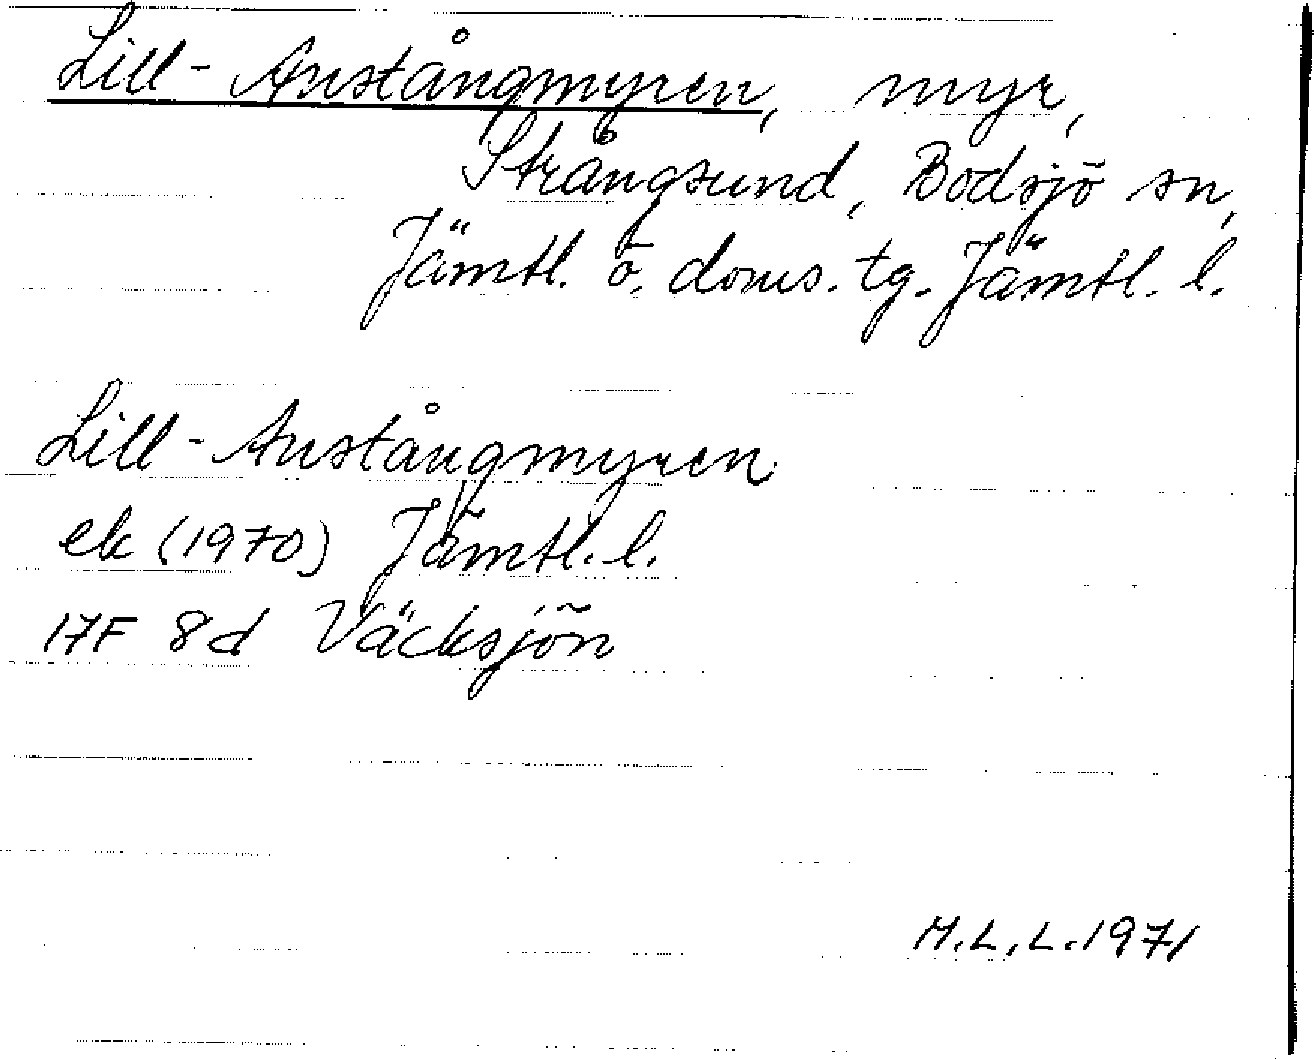 Lill-Anstångmyren, myr,
Strångsund, Bodsjö sn,
Jämtl. ö. doms. tg. Jämtl. l.
Lill-Anstångmyren
ek (1970) Jämtl. l.
17F 8d Väcksjön
M.L.L. 1971